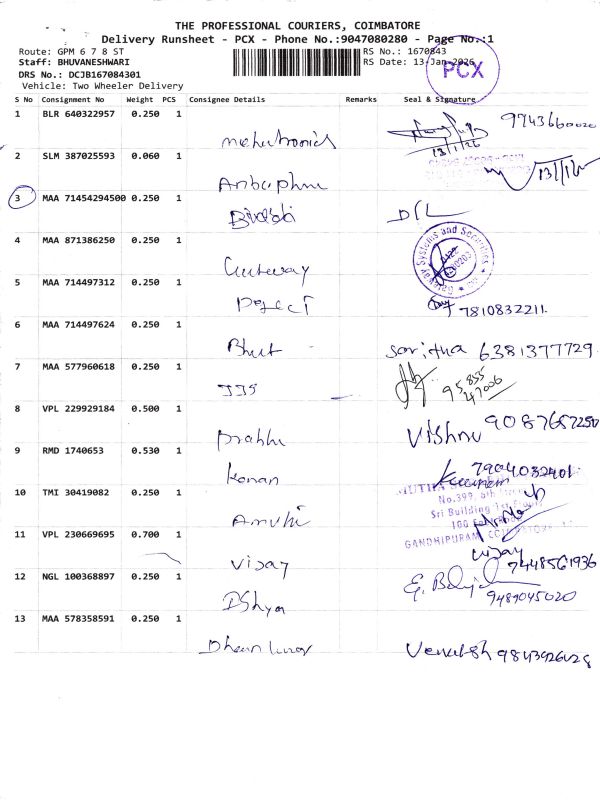 THE PROFESSIONAL COURIERS, COIMBATORE
Delivery Runsheet - PCX - Phone No.:9047080280 - Page No.:1
Route: GPM 6 7 8 ST
RS No.: 1670843
Staff: BHUVANESHWARI
RS Date: 13-Jan-2026
PCX
DRS No.: DCJB167084301
Vehicle: Two Wheeler Delivery
S No Consignment No Weight PCS Consignee Details Remarks Seal & Signature
1 BLR 640322957 0.250 1
13/1/26
2 SLM 387025593 0.060 1
13/1/26
3 MAA 71454294500 0.250 1
D/L
4 MAA 871386250 0.250 1
Gateway Systems and Securities
5 MAA 714497312 0.250 1
7810832211.
6 MAA 714497624 0.250 1
Bhut
Saritha 6381377729
7 MAA 577960618 0.250 1
JJS
95855
47006
8 VPL 229929184 0.500 1
Prabhu
Vishnu
9 RMD 1740653 0.530 1
Kanan
7904032401
10 TMI 30419082 0.250 1
No.399, 6th
Sri Building 1st Floor
100 Feet Road
GANDHIPURAM, COIMBATORE
11 VPL 230669695 0.700 1
Vijay
Vijay
7448561936
12 NGL 100368897 0.250 1
9489045020
13 MAA 578358591 0.250 1
Venkatesh